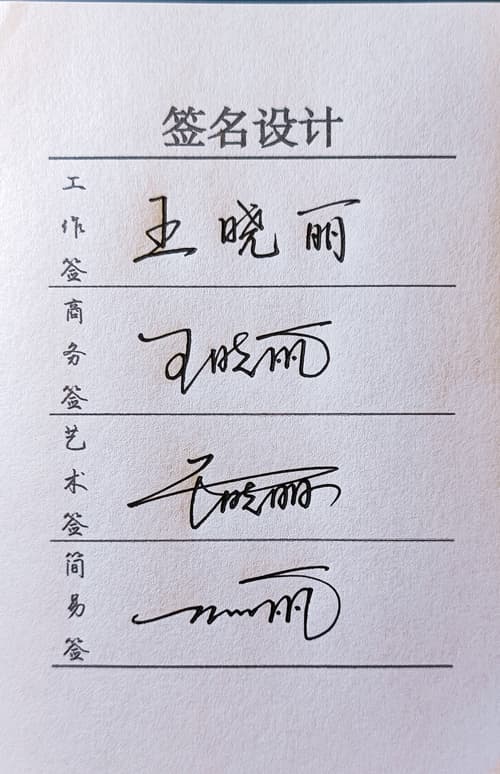 签名设计
工作签
王晓丽
商务签
王晓丽
艺术签
王晓丽
简易签